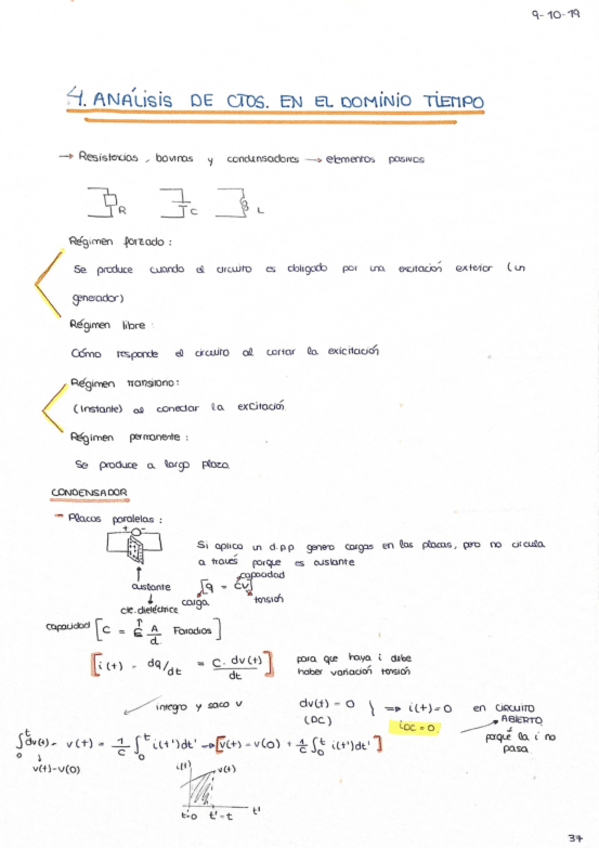 9-10-19
4. ANÁLISIS DE CTOS. EN EL DOMINIO TIEMPO
→ Resistencias, bovinas y condensadores → elementos pasivos
R C L
Régimen forzado:
Se produce cuando el circuito es obligado por una excitación exterior (un
generador)
Régimen libre:
Cómo responde el circuito al cortar la exicitación
Régimen transitorio:
(Instante) al conectar la excitación
Régimen permanente:
Se produce a largo plazo
CONDENSADOR
- Placas paralelas:
+ -
Si aplico un d.p.p genero cargas en las placas, pero no circula
a través porque es aislante
aislante
capacidad
[q = CV]
carga
tensión
cte. dieléctrica
capacidad [C = ε A/d Faradios]
[i(t) = dq/dt = C. dv(t)/dt]
para que haya i debe
haber variación tensión
integro y saco v
dv(t) = 0
(DC)
} ⇒ i(t)=0 en CIRCUITO
ABIERTO
iDC = 0
porqué la i no
pasa
∫₀ᵗ dv(t) = v(t) = 1/C ∫₀ᵗ i(t')dt' → [v(t) = v(0) + 1/C ∫₀ᵗ i(t')dt']
v(t)-v(0)
i(t)
v(t)
t'=0 t'=t t'
37